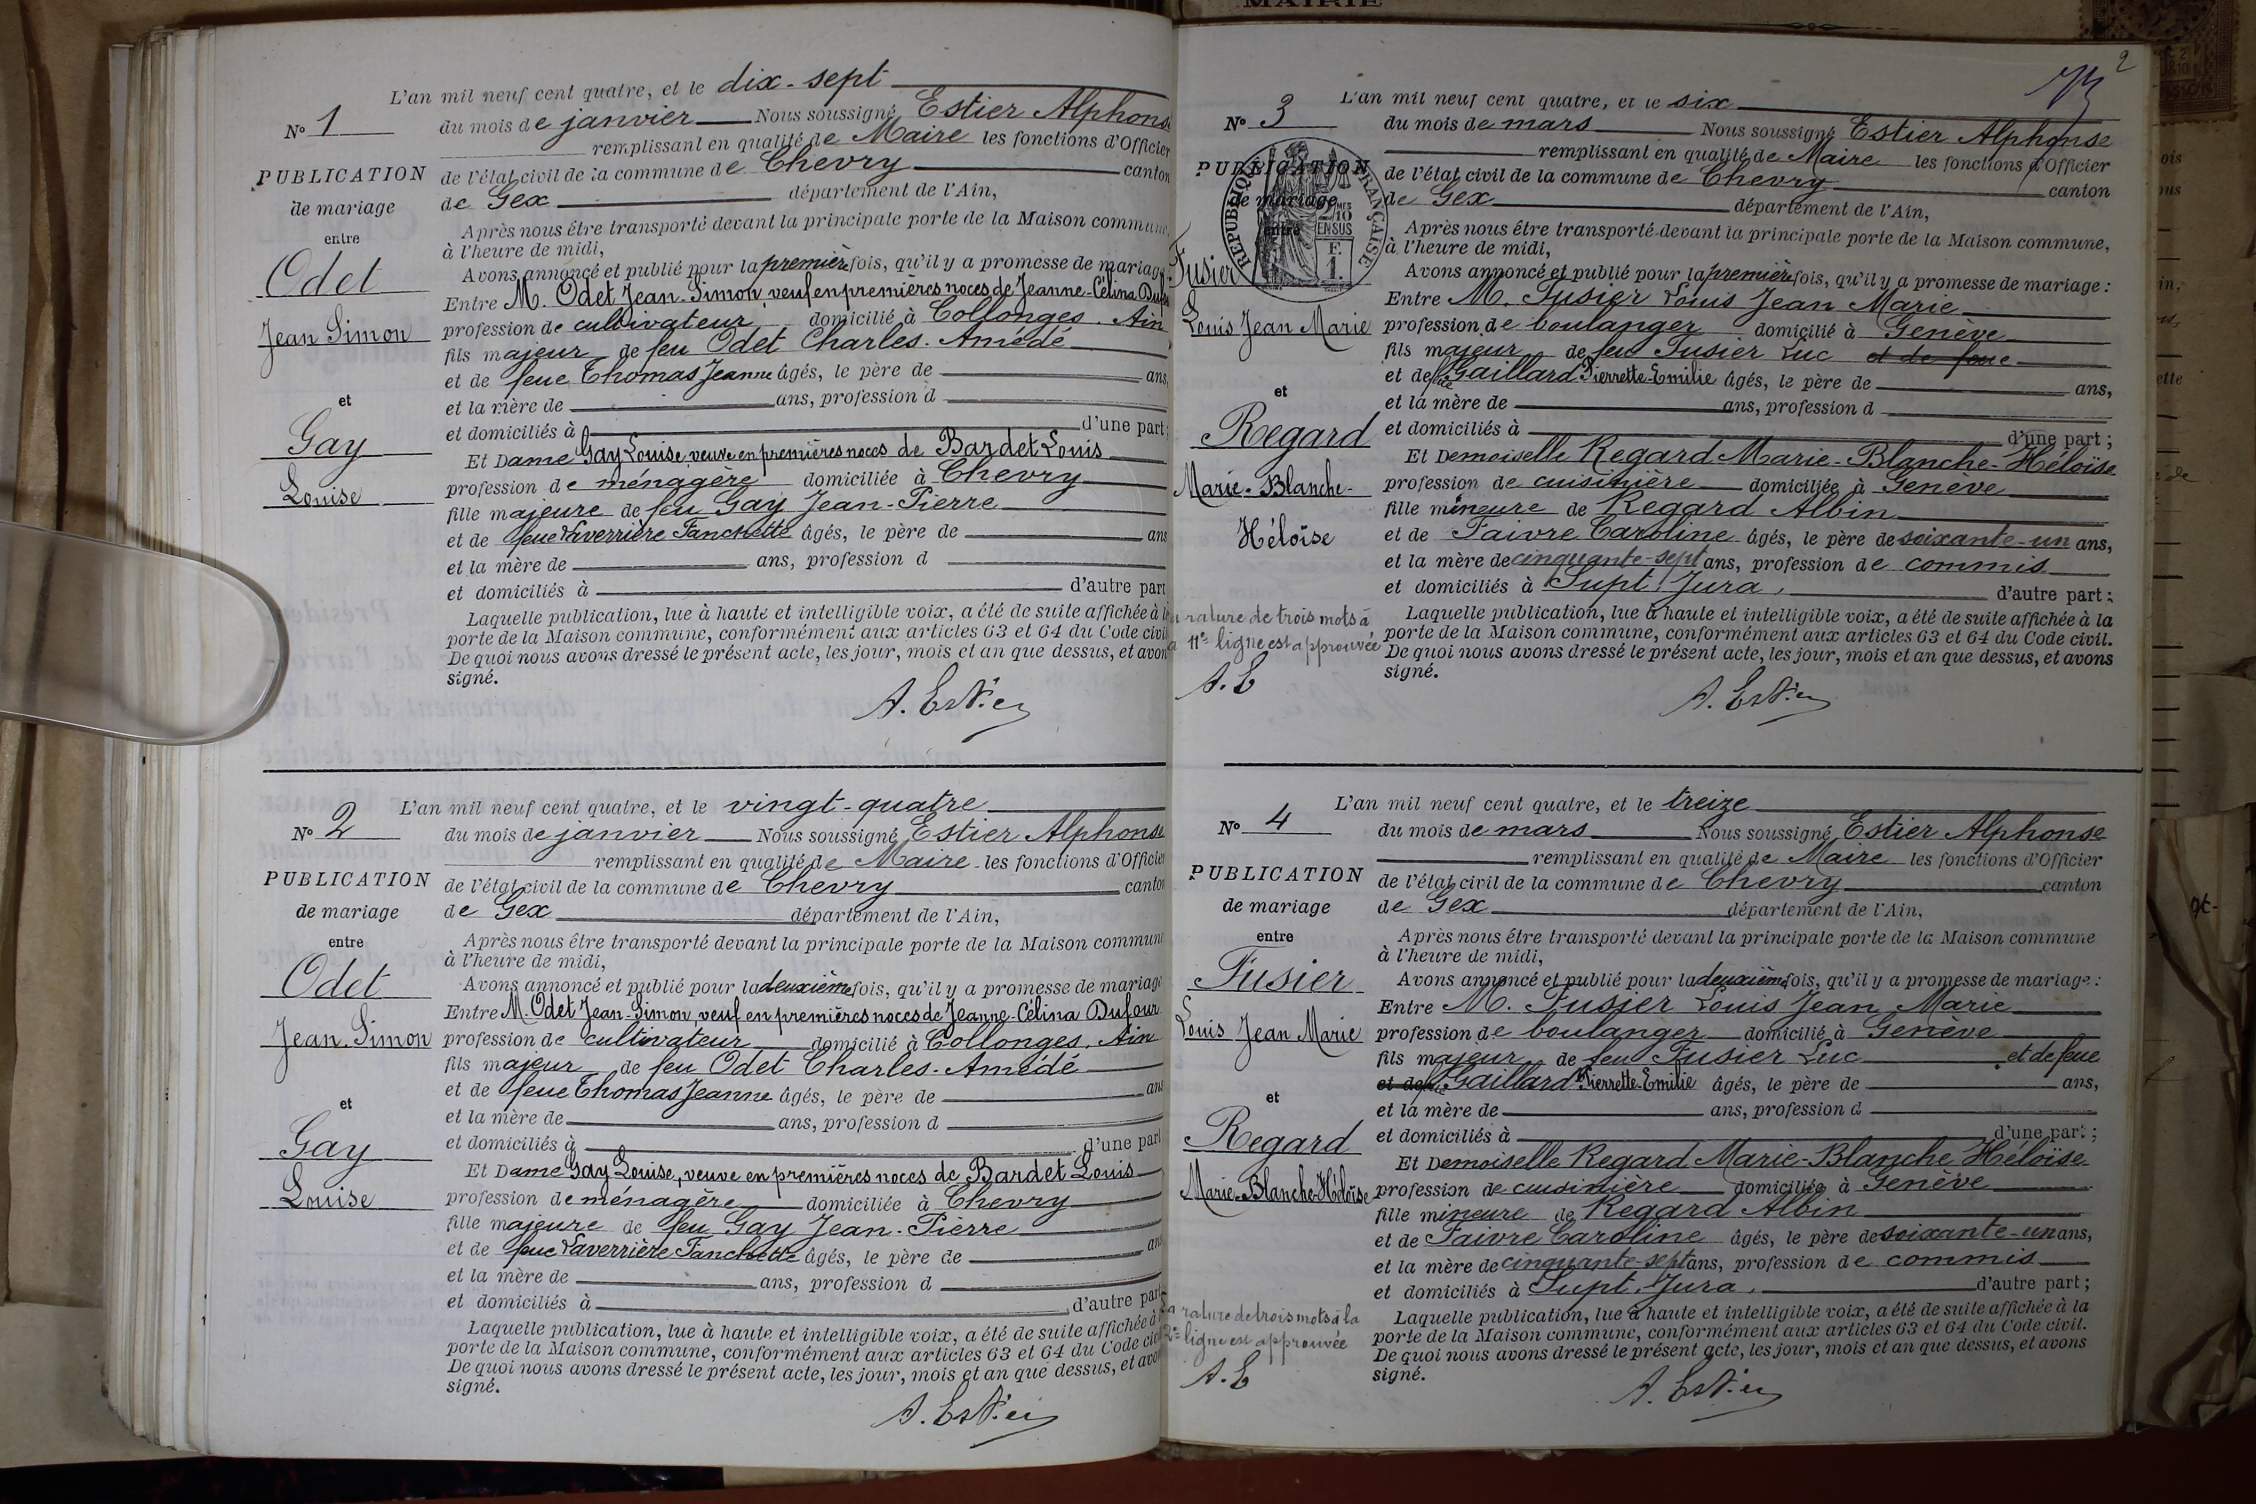 MAIRIE
L'an mil neuf cent quatre, et le dix-sept
No 1
du mois de janvier Nous soussigné Estier Alphonse
remplissant en qualité de Maire les fonctions d'Officier
PUBLICATION
de l'état civil de la commune de Chevry canton
de mariage
de Gex département de l'Ain,
entre
Après nous être transporté devant la principale porte de la Maison commune,
à l'heure de midi,
Odet
Avons annoncé et publié pour la première fois, qu'il y a promesse de mariage
Entre M. Odet Jean-Simon, veuf en premières noces de Jeanne-Célina Dufour
Jean Simon
profession de cultivateur domicilié à Collonges. Ain
fils majeur de feu Odet Charles-Amédé
et de feue Thomas Jeanne âgés, le père de ans,
et
et la mère de ans, profession d
et domiciliés à d'une part;
Gay
Et Dame Gay Louise, veuve en premières noces de Bardet Louis
Louise
profession de ménagère domiciliée à Chevry
fille majeure de feu Gay Jean-Pierre
et de feue Laverrière Fanchette âgés, le père de ans
et la mère de ans, profession d
et domiciliés à d'autre part
Laquelle publication, lue à haute et intelligible voix, a été de suite affichée à la
porte de la Maison commune, conformément aux articles 63 et 64 du Code civil
De quoi nous avons dressé le présent acte, les jour, mois et an que dessus, et avons
signé.
A. Estier
L'an mil neuf cent quatre, et le vingt-quatre
No 2
du mois de janvier Nous soussigné Estier Alphonse
remplissant en qualité de Maire les fonctions d'Officier
PUBLICATION
de l'état civil de la commune de Chevry canton
de mariage
de Gex département de l'Ain,
entre
Après nous être transporté devant la principale porte de la Maison commune
à l'heure de midi,
Odet
Avons annoncé et publié pour la deuxième fois, qu'il y a promesse de mariage
Entre M. Odet Jean-Simon, veuf en premières noces de Jeanne-Célina Dufour
Jean-Simon
profession de cultivateur domicilié à Collonges. Ain
fils majeur de feu Odet Charles-Amédé
et de feue Thomas Jeanne âgés, le père de ans
et
et la mère de ans, profession d
et domiciliés à d'une part
Gay
Et Dame Gay Louise, veuve en premières noces de Bardet Louis
Louise
profession de ménagère domiciliée à Chevry
fille majeure de feu Gay Jean-Pierre
et de feue Laverrière Fanchette âgés, le père de ans
et la mère de ans, profession d
et domiciliés à d'autre part
Laquelle publication, lue à haute et intelligible voix, a été de suite affichée à
porte de la Maison commune, conformément aux articles 63 et 64 du Code civil
De quoi nous avons dressé le présent acte, les jour, mois et an que dessus, et avons
signé.
A. Estier
2
L'an mil neuf cent quatre, et le six
No 3
du mois de mars Nous soussigné Estier Alphonse
remplissant en qualité de Maire les fonctions d'Officier
PUBLICATION
de l'état civil de la commune de Chevry canton
de mariage
de Gex département de l'Ain,
entre
RÉPUBLIQUE FRANÇAISE
2 MES 10
EN SUS
F.
1.
Après nous être transporté devant la principale porte de la Maison commune,
à l'heure de midi,
Fusier
Avons annoncé et publié pour la première fois, qu'il y a promesse de mariage :
Entre M. Fusier Louis Jean Marie
Louis Jean Marie
profession de boulanger domicilié à Genève
fils majeur de feu Fusier Luc et de feue
et de feue Gaillard Pierrette-Emilie âgés, le père de ans,
et
et la mère de ans, profession d
Regard
et domiciliés à d'une part ;
Et Demoiselle Regard Marie-Blanche-Héloïse
Marie-Blanche-
profession de cuisinière domiciliée à Genève
fille mineure de Regard Albin
Héloïse
et de Faivre Caroline âgés, le père de soixante-un ans,
et la mère de cinquante-sept ans, profession de commis
et domiciliés à Supt. Jura, d'autre part ;
Laquelle publication, lue à haute et intelligible voix, a été de suite affichée à la
porte de la Maison commune, conformément aux articles 63 et 64 du Code civil.
De quoi nous avons dressé le présent acte, les jour, mois et an que dessus, et avons
signé.
rature de trois mots à
11e ligne est approuvée
A. E
A. Estier
L'an mil neuf cent quatre, et le treize
No 4
du mois de mars Nous soussigné Estier Alphonse
remplissant en qualité de Maire les fonctions d'Officier
PUBLICATION
de l'état civil de la commune de Chevry canton
de mariage
de Gex département de l'Ain,
entre
Après nous être transporté devant la principale porte de la Maison commune
à l'heure de midi,
Fusier
Avons annoncé et publié pour la deuxième fois, qu'il y a promesse de mariage :
Entre M. Fusier Louis Jean Marie
Louis Jean Marie
profession de boulanger domicilié à Genève
fils majeur de feu Fusier Luc et de feue
et de feue Gaillard Pierrette-Emilie âgés, le père de ans,
et
et la mère de ans, profession d
et domiciliés à d'une part ;
Regard
Et Demoiselle Regard Marie-Blanche Héloïse
Marie-Blanche-Héloïse
profession de cuisinière domiciliée à Genève
fille mineure de Regard Albin
et de Faivre Caroline âgés, le père de soixante-un ans,
et la mère de cinquante-sept ans, profession de commis
et domiciliés à Supt. Jura, d'autre part ;
Laquelle publication, lue à haute et intelligible voix, a été de suite affichée à la
porte de la Maison commune, conformément aux articles 63 et 64 du Code civil.
De quoi nous avons dressé le présent acte, les jour, mois et an que dessus, et avons
signé.
La rature de trois mots à la
12e ligne est approuvée
A. E
A. Estier